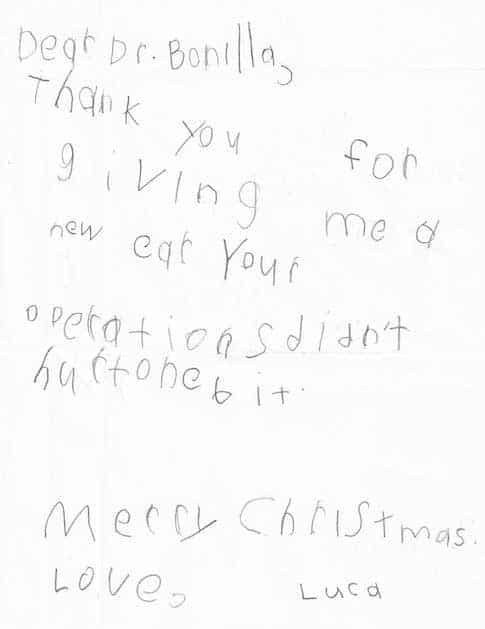 Dear Dr. Bonilla,
Thank you for
giving me a
new ear your
operations didn't
hurt one bit.
Merry Christmas.
Love, Luca